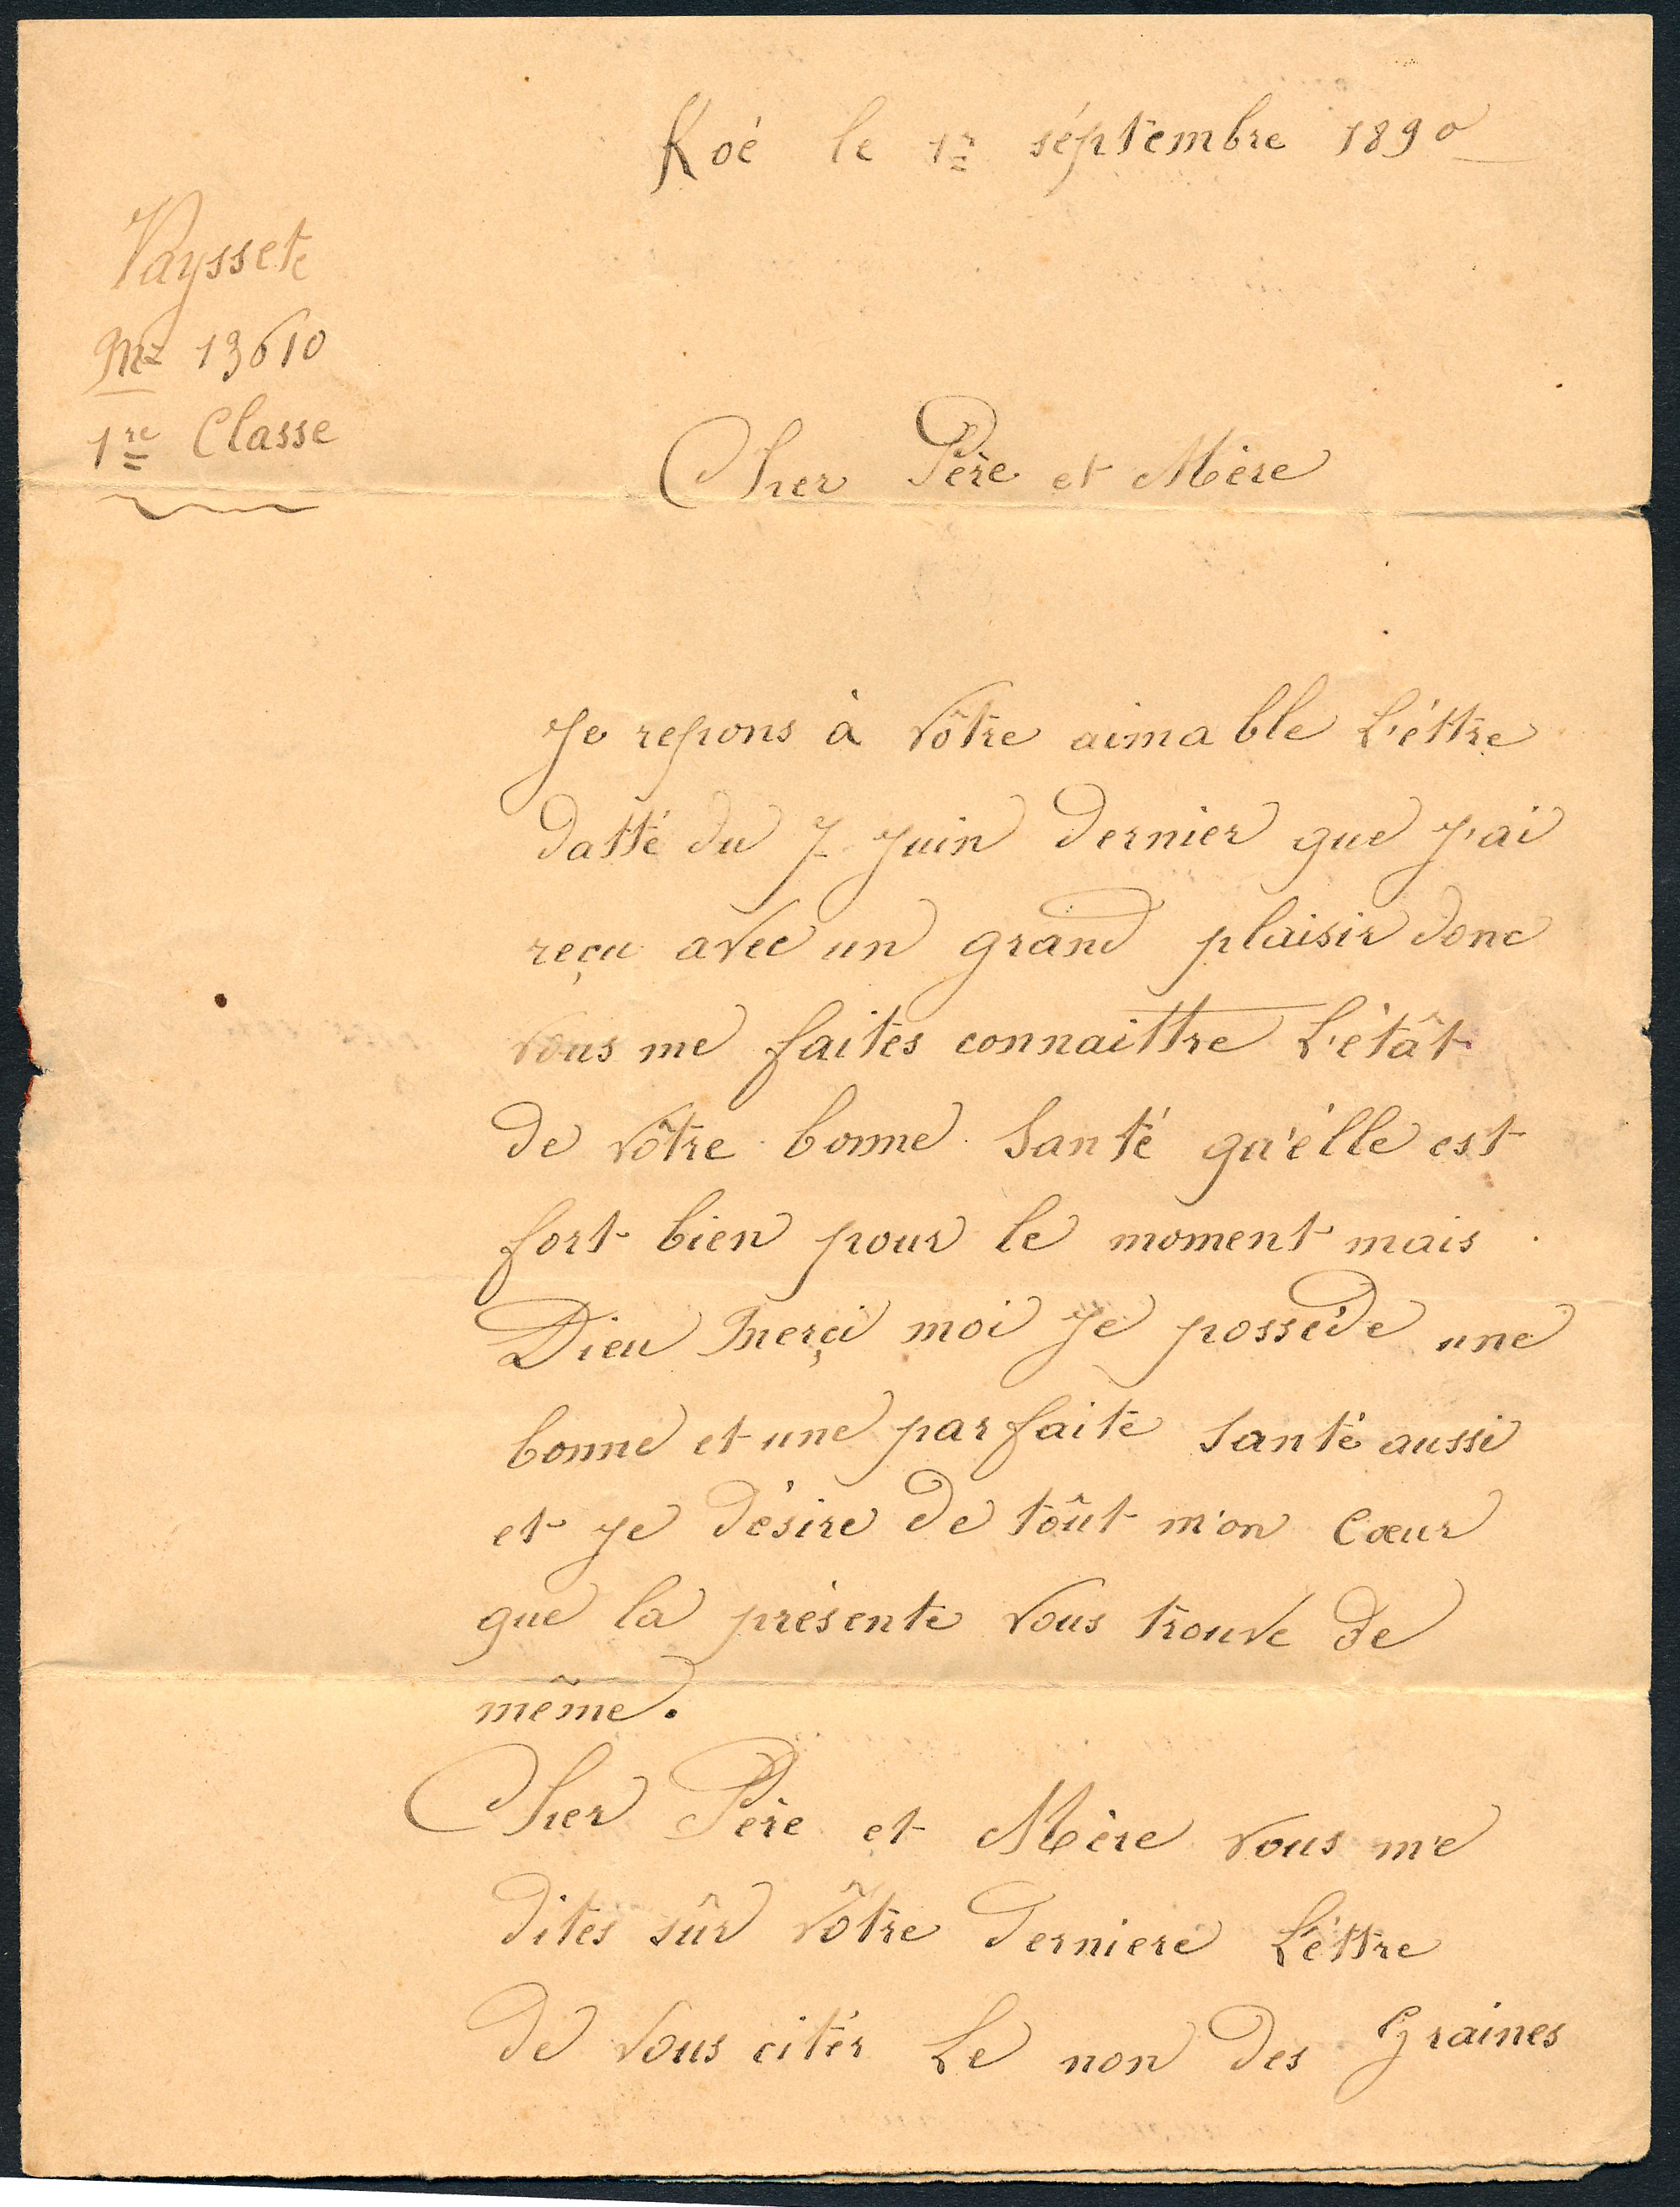 Koé le 1r séptembre 1890
Vayssete
Mle 13610
1re Classe
Cher Père et Mère
Je repons à vôtre aimable L'éttre
datté du 7 Juin dernier que J'ai
reçu avec un grand plaisir donc
vous me faites connaittre L'étât
de vôtre bonne Santé qu'élle est
fort bien pour le moment mais
Dieu Merçi moi Je posséde une
bonne et une parfaite Santé aussi
et Je désire de tôut m'on Cœur
que la présente vous trouve de
même.
Cher Père et Mère vous m'e
dites sûr vôtre derniere L'éttre
de vous citér Le non des Graines